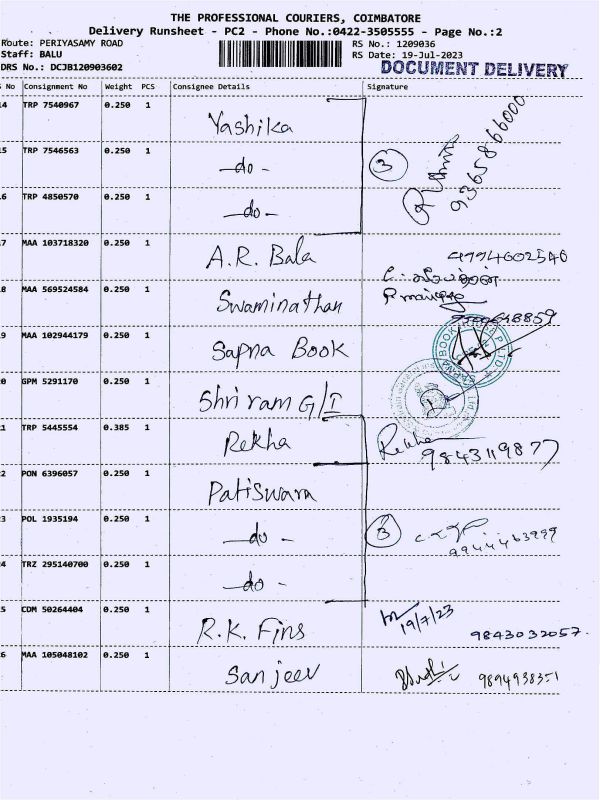 THE PROFESSIONAL COURIERS, COIMBATORE
Delivery Runsheet - PC2 - Phone No.:0422-3505555 - Page No.:2
Route: PERIYASAMY ROAD RS No.: 1209036
Staff: BALU RS Date: 19-Jul-2023
DRS No.: DCJB120903602 DOCUMENT DELIVERY
No Consignment No Weight PCS Consignee Details Signature
4 TRP 7540967 0.250 1 Yashika
5 TRP 7546563 0.250 1 -do- 3
6 TRP 4850570 0.250 1 -do- 9365866000
7 MAA 103718320 0.250 1 A.R. Bala 4994602540
8 MAA 569524584 0.250 1 Swaminathan
9 MAA 102944179 0.250 1 Sapna Book
0 GPM 5291170 0.250 1 Shri ram G/I
1 TRP 5445554 0.385 1 Rekha Rekha 9843119877
2 PON 6396057 0.250 1 Patiswara
3 POL 1935194 0.250 1 -do- 3 9944463999
4 TRZ 295140700 0.250 1 -do-
5 COM 50264404 0.250 1 R.K. Fins 19/7/23 9843032057.
6 MAA 105048102 0.250 1 Sanjeev 9894938351